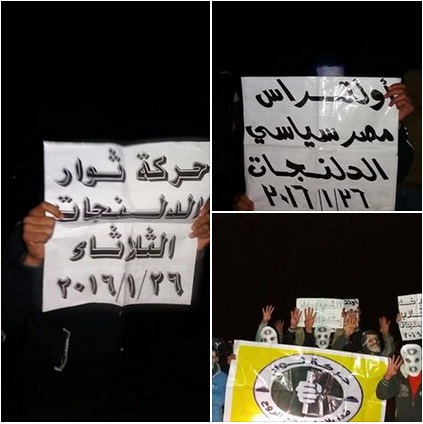 حركة ثوار
الدلنجات
الثلاثاء
٢٠١٦/١/٢٦
أولتراس
مصر سياسي
الدلنجات
٢٠١٦/١/٢٦
حركة ثوار